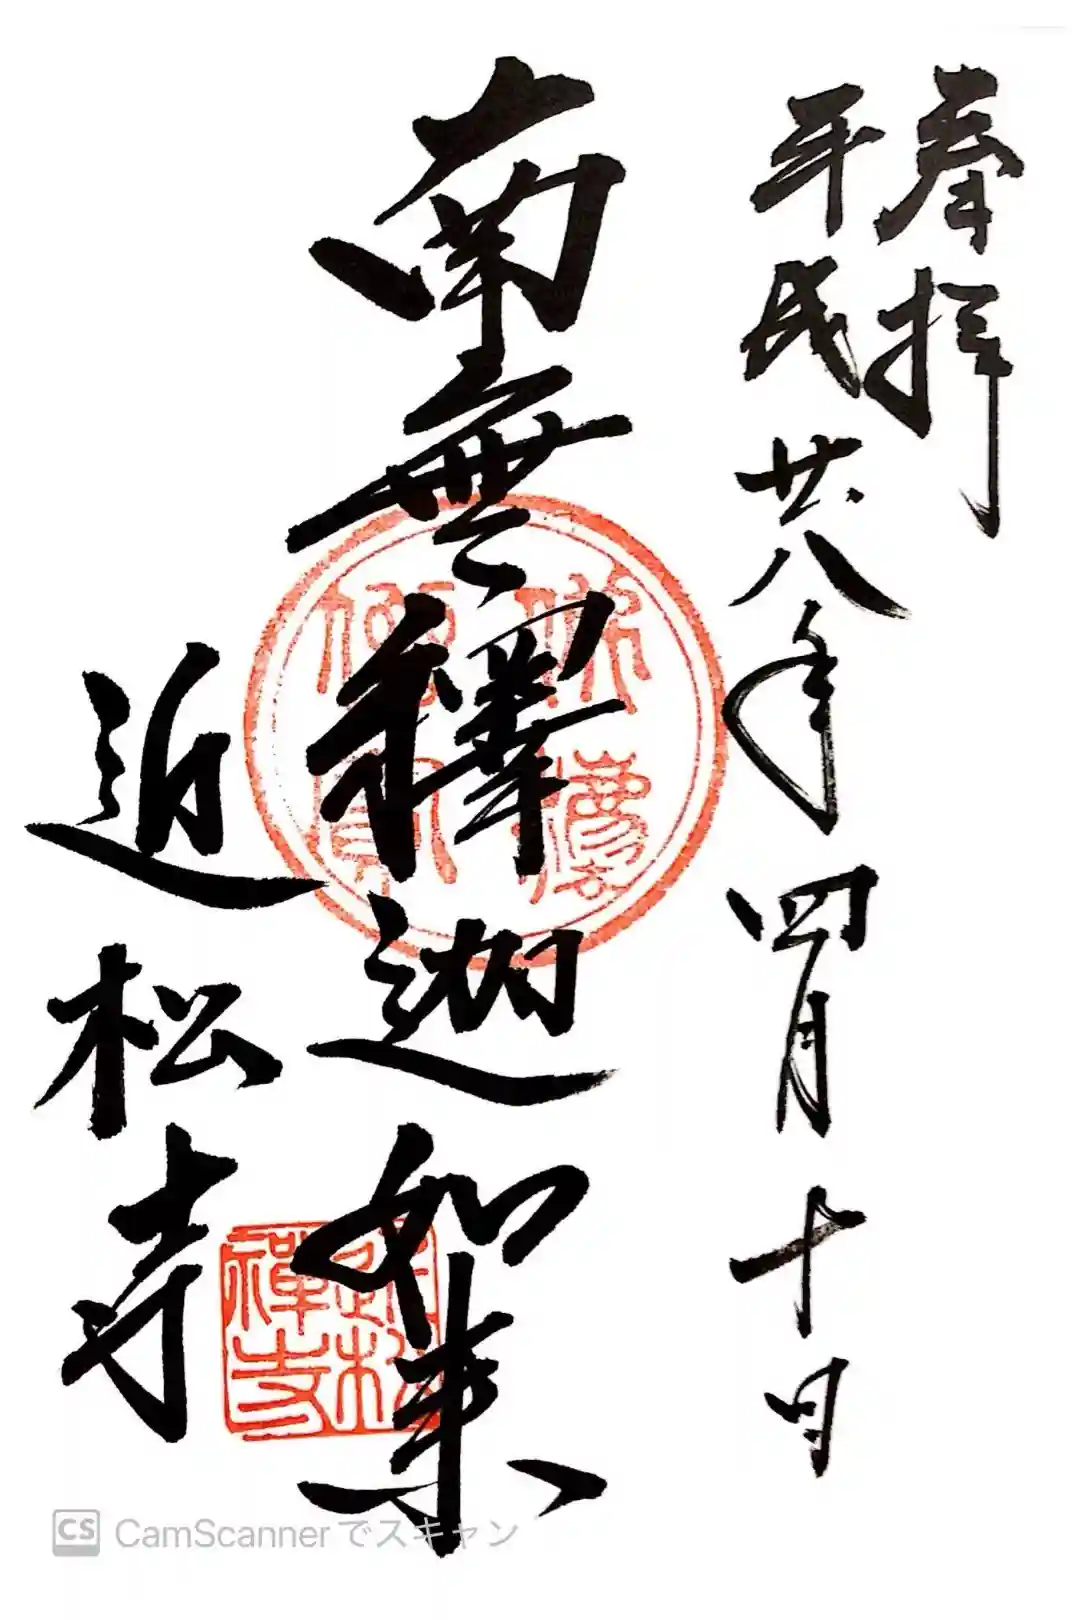 奉拝
平成廿八年四月十日
南無釋迦如来
近松寺
佛法僧寶
近松禅寺
CS CamScannerでスキャン